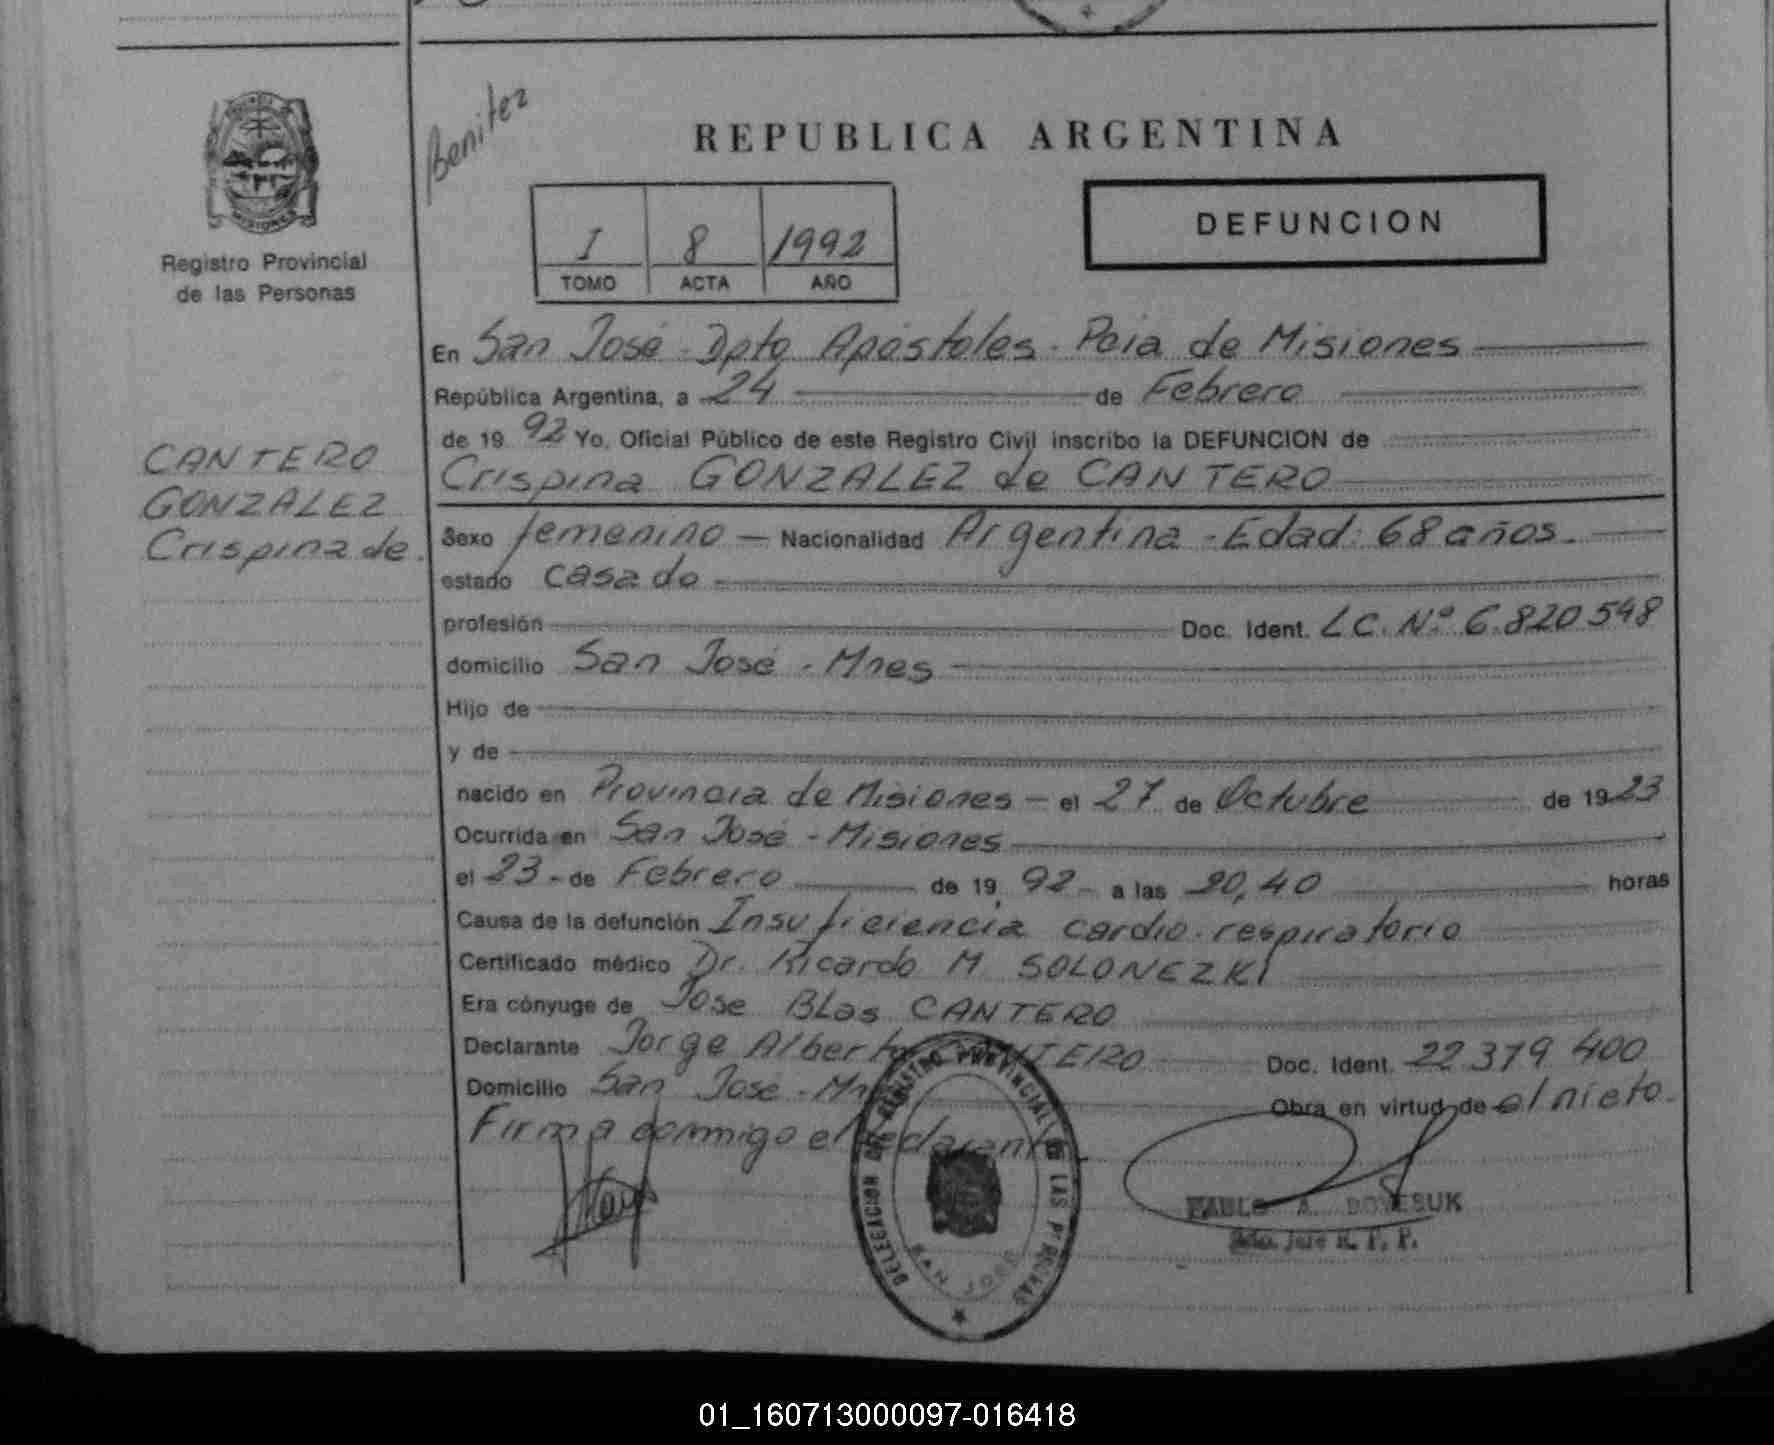 Benitez
REPUBLICA ARGENTINA
I 8 1992
TOMO ACTA AÑO
DEFUNCION
MISIONES
Registro Provincial
de las Personas
CANTERO
GONZALEZ
Crispina de.
En San José - Dpto Apóstoles - Pcia de Misiones
República Argentina, a 24 de Febrero
de 19 92 Yo, Oficial Público de este Registro Civil inscribo la DEFUNCION de
Crispina GONZALEZ de CANTERO
Sexo femenino - Nacionalidad Argentina - Edad: 68 años.
estado casado
profesión Doc. Ident. LC. Nº 6.820.548
domicilio San José - Mnes
Hijo de
y de
nacido en Provincia de Misiones - el 27 de Octubre de 1923
Ocurrida en San José - Misiones
el 23 - de Febrero de 19 92 - a las 20,40 horas
Causa de la defunción Insuficiencia cardio-respiratorio
Certificado médico Dr. Ricardo M SOLONEZKI
Era cónyuge de Jose BLas CANTERO
Declarante Jorge Alberto CANTERO Doc. Ident. 22.379.400
Domicilio San José - Mnes Obra en virtud de el nieto.
Firma conmigo el declarante
DELEGACION DEL REGISTRO PROVINCIAL DE LAS PERSONAS
SAN JOSE
PABLO A.
R. P. P.
01_160713000097-016418